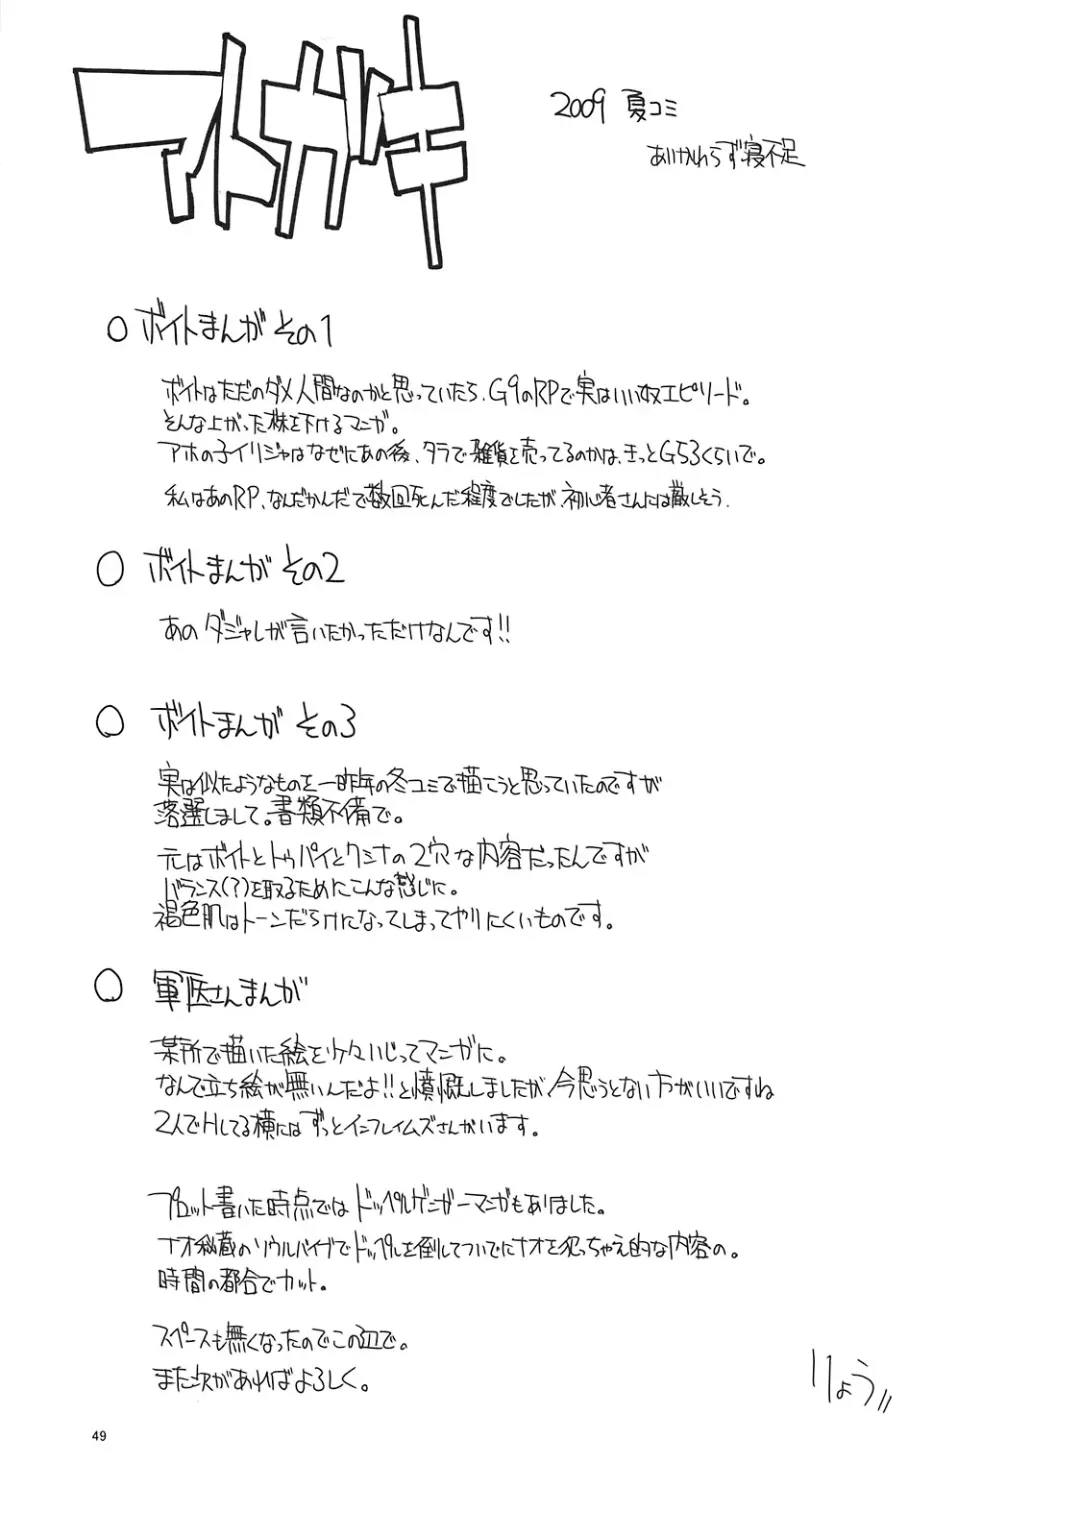 アトガキ
2009 夏コミ
あいかわらず寝不足
○ ボイトまんが その1
ボイトはただのダメ人間なのかと思っていたら、G9のRPで実はいい奴エピソード。
そんな上がった株を下げるマンガ。
アホの子イリジャはなぜにあの後、タラで雑貨を売ってるのかは、きっとG53くらいで。
私はあのRP、なんだかんだで数回死んだ程度でしたが、初心者さんには厳しそう.
○ ボイトまんが その2
あのダジャレが言いたかっただけなんです!!
○ ボイトまんが その3
実は似たようなものを一昨年の冬コミで描こうと思っていたのですが
落選しまして。書類不備で。
元はボイトとトゥパイとクミナの2穴な内容だったんですが
バランス(?)を取るためにこんな感じに。
褐色肌はトーンだらけになってしまってやりにくいものです。
○ 軍医さんまんが
某所で描いた絵を少々いじってマンガに。
なんで立ち絵が無いんだよ!!と憤慨しましたが、今思うとない方がいいですね
2人でHしてる横にはずっとインフレイムズさんがいます。
プロット書いた時点ではドッペルゲンガーマンガもありました。
ナオ秘蔵のソウルバイブでドッペルを倒してついでにナオを犯っちゃえ的な内容の。
時間の都合でカット。
スペースも無くなったのでこの辺で。
また次があればよろしく。
りょう
49